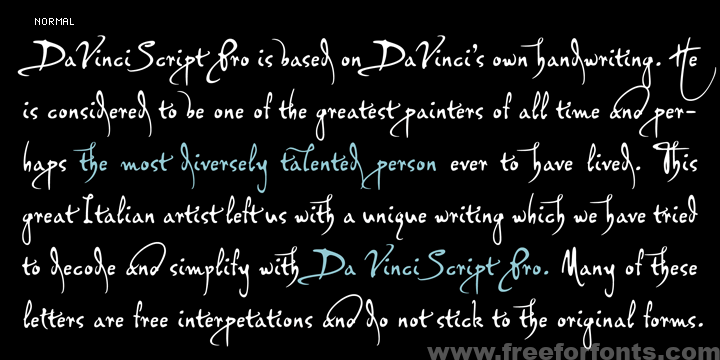 NORMAL
DaVinci Script Pro is based on DaVinci's own handwriting. He
is considered to be one of the greatest painters of all time and per-
haps the most diversely talented person ever to have lived. This
great Italian artist left us with a unique writing which we have tried
to decode and simplify with Da Vinci Script Pro. Many of these
letters are free interpetations and do not stick to the original forms.
www.freeforfonts.com